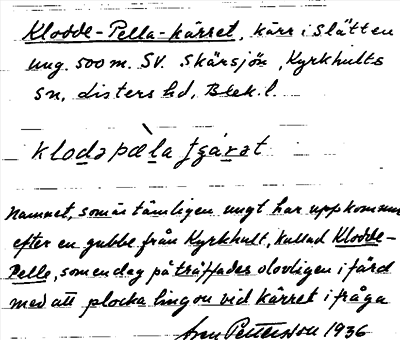 Klodde-Pella-kärret, kärr i Slätten
ung. 500 m. SV. Skärsjön, Kyrkhults
sn, Listers hd, Blek. l.
klodəpæ̀la ʃɛárət
Namnet, som är tämligen ungt har uppkommit
efter en gubbe från Kyrkhult, kallad Klodde-
Pelle, som en dag påträffades olovligen i färd
med att plocka lingon vid kärret i fråga
Petterson 1936